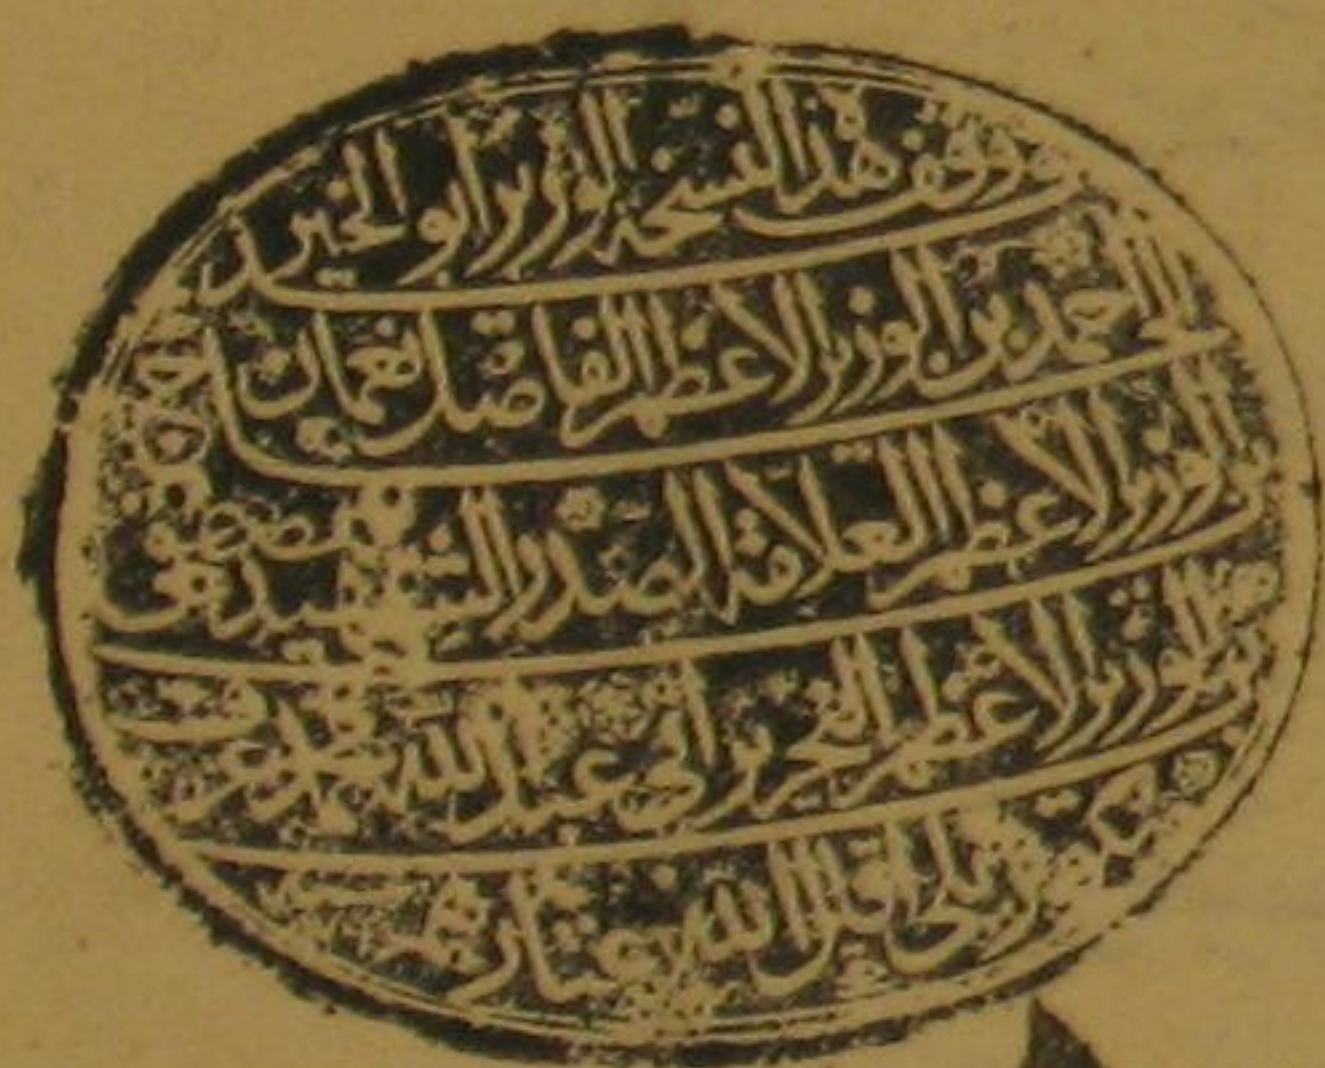 وقف هذا النسخة الوزير ابو الخير
الحاج احمد بن الوزير الاعظم الفاضل نعمان
بن الوزير الاعظم العلامة الصدر الشهيد مصطفى
بن الوزير الاعظم النحرير ابي عبد الله محمد عرف
بكوپريلي اقال الله عثارهم